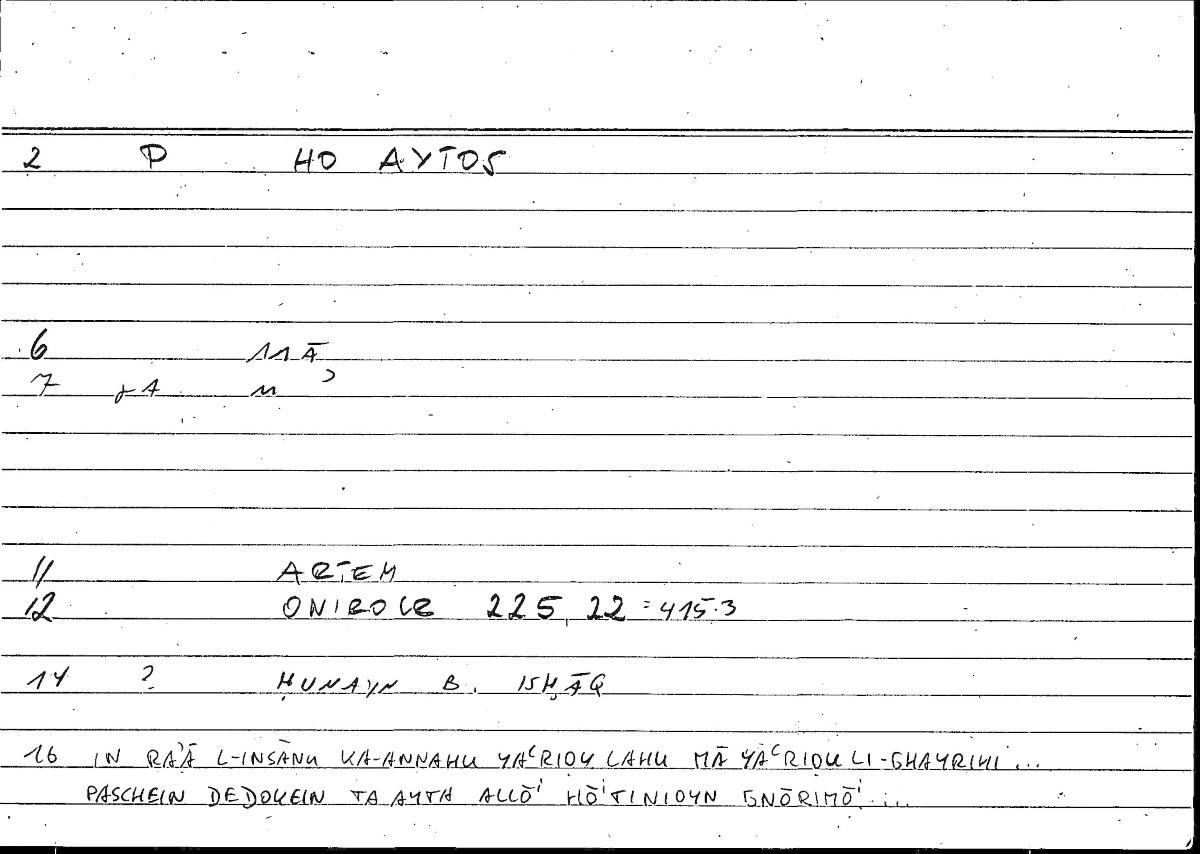 2 P HO AYTOS
6 11Ā
7 γ1 11ʾ
11 ARTEM
12 ONIROCR 225, 22 = 415.3
14 ? ḤUNAYN B. ISḤĀQ
16 IN RAʾĀ L-INSĀNU KA-ANNAHU YAʿRIḌU LAHU MĀ YAʿRIḌU LI-GHAYRIHI ...
PASCHEIN DE DOKEIN TA AYTA ALLŌⁱ HŌⁱTINIOYN GNŌRIMŌⁱ ...